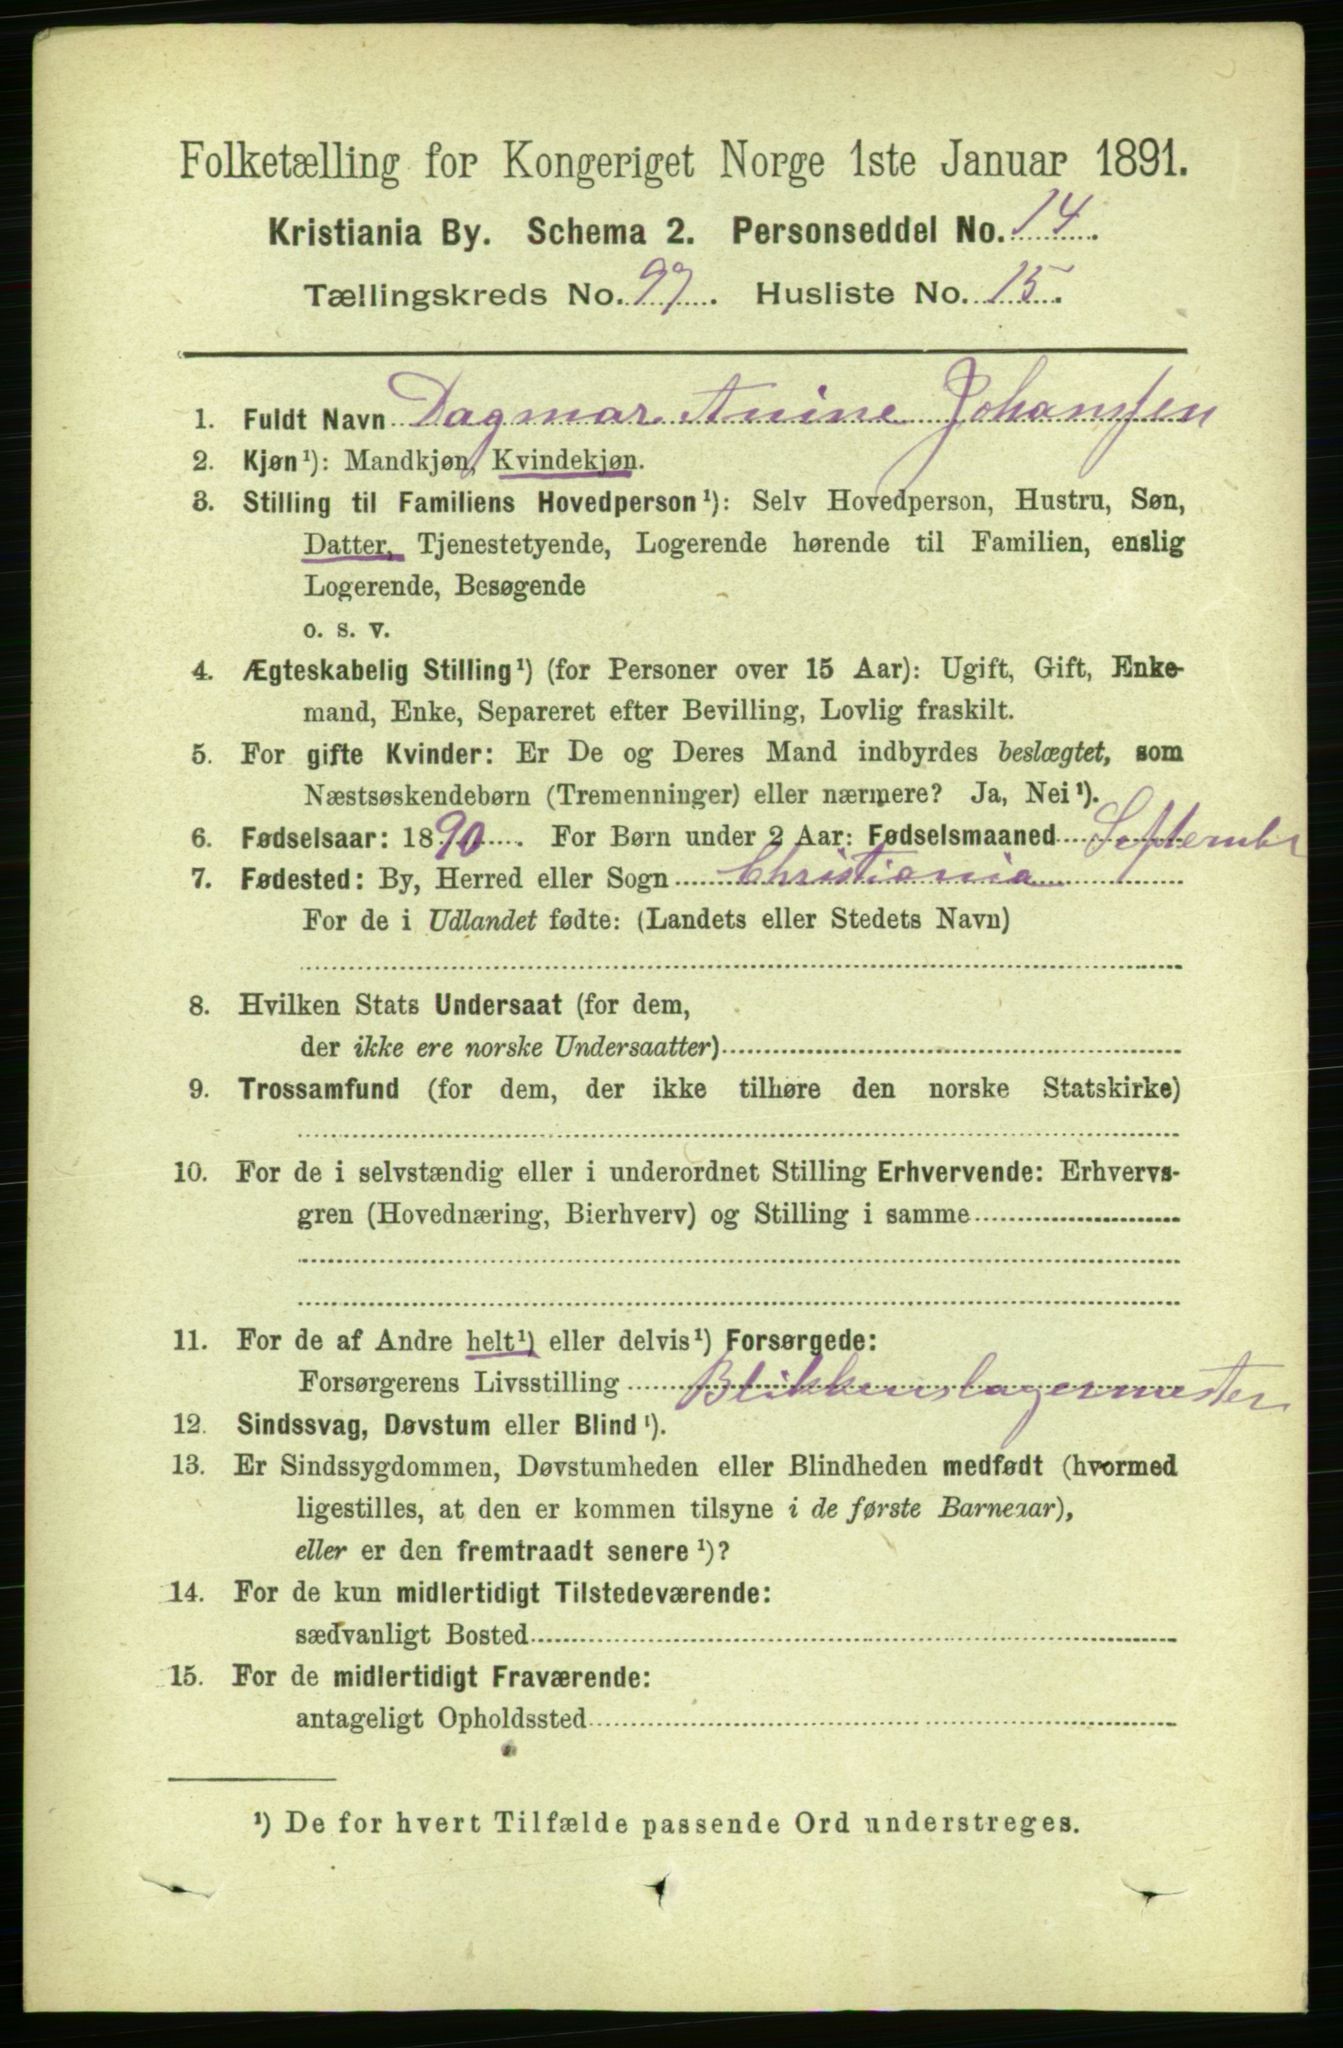 Folketælling for Kongeriget Norge 1ste Januar 1891.
Kristiania By. Schema 2. Personseddel No. 14.
Tællingskreds No. 97. Husliste No. 15.
1. Fuldt Navn Dagmar Anine Johanssen
2. Kjøn¹): Mandkjøn, Kvindekjøn.
3. Stilling til Familiens Hovedperson¹): Selv Hovedperson, Hustru, Søn,
Datter, Tjenestetyende, Logerende hørende til Familien, enslig
Logerende, Besøgende
o. s. v.
4. Ægteskabelig Stilling¹) (for Personer over 15 Aar): Ugift, Gift, Enke-
mand, Enke, Separeret efter Bevilling, Lovlig fraskilt.
5. For gifte Kvinder: Er De og Deres Mand indbyrdes beslægtet, som
Næstsøskendebørn (Tremenninger) eller nærmere? Ja, Nei¹).
6. Fødselsaar: 1890. For Børn under 2 Aar: Fødselsmaaned September
7. Fødested: By, Herred eller Sogn Christiania
For de i Udlandet fødte: (Landets eller Stedets Navn)
8. Hvilken Stats Undersaat (for dem,
der ikke ere norske Undersaatter)
9. Trossamfund (for dem, der ikke tilhøre den norske Statskirke)
10. For de i selvstændig eller i underordnet Stilling Erhvervende: Erhvervs-
gren (Hovednæring, Bierhverv) og Stilling i samme
11. For de af Andre helt¹) eller delvis¹) Forsørgede:
Forsørgerens Livsstilling Blikkenslagermester
12. Sindssvag, Døvstum eller Blind¹).
13. Er Sindssygdommen, Døvstumheden eller Blindheden medfødt (hvormed
ligestilles, at den er kommen tilsyne i de første Barneaar),
eller er den fremtraadt senere¹)?
14. For de kun midlertidigt Tilstedeværende:
sædvanligt Bosted
15. For de midlertidigt Fraværende:
antageligt Opholdssted
¹) De for hvert Tilfælde passende Ord understreges.